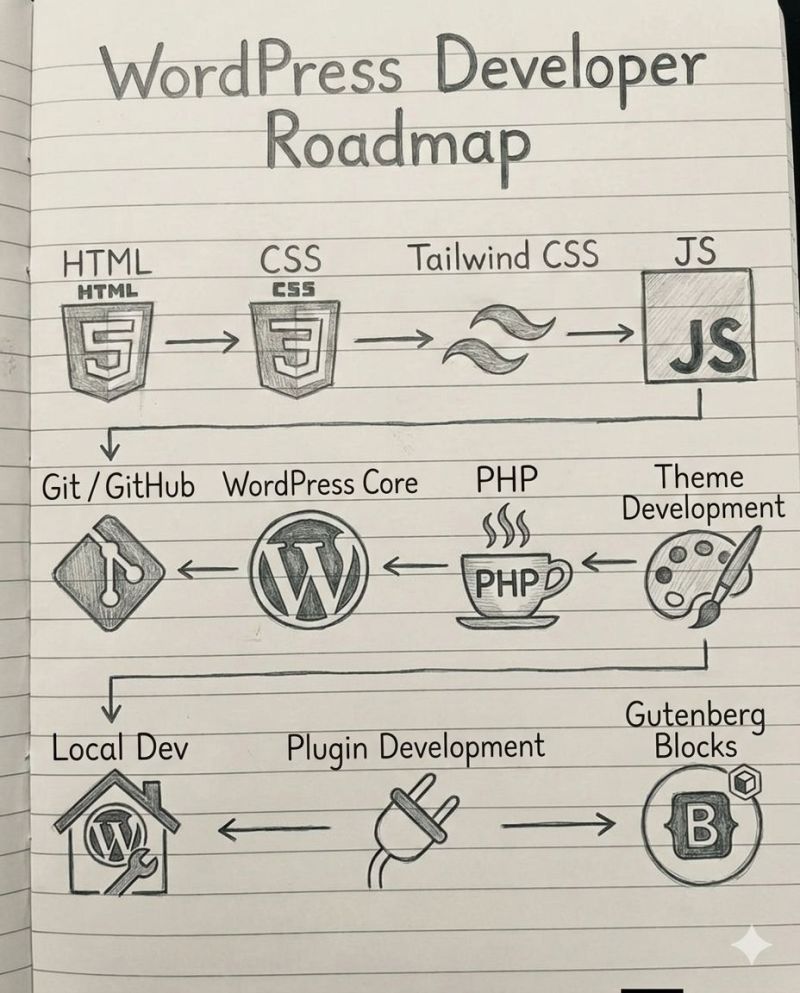 WordPress Developer
Roadmap
HTML
HTML
5
CSS
CSS
3
Tailwind CSS
JS
JS
Git / GitHub
WordPress Core
W
PHP
PHP
Theme
Development
Local Dev
W
Plugin Development
Gutenberg
Blocks
B